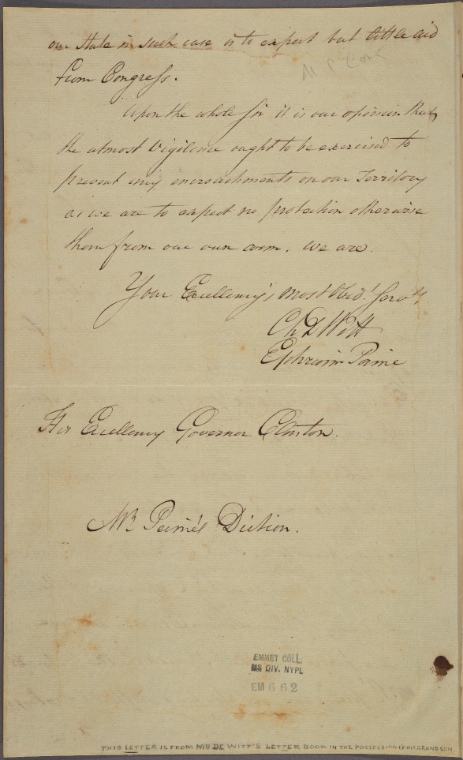 our State in such case is to expect but little aid
from Congress.
Upon the whole Sir it is our opinion that
the utmost Vigilence ought to be exercised to
prevent any encroachments on our Territory
as we are to expect no protection otherwise
them from our own arm. we are
Your Excellency's most Obed.t Servts,
Ch D Witt
Ephraim Paine
His Excellency Governor Clinton.
Mr. Peine's Diction.
EMMET COLL.
MS DIV. NYPL
EM 662
THIS LETTER IS FROM MR DE WITT'S LETTER BOOK IN THE POSSESSION OF HIS GRANDSON